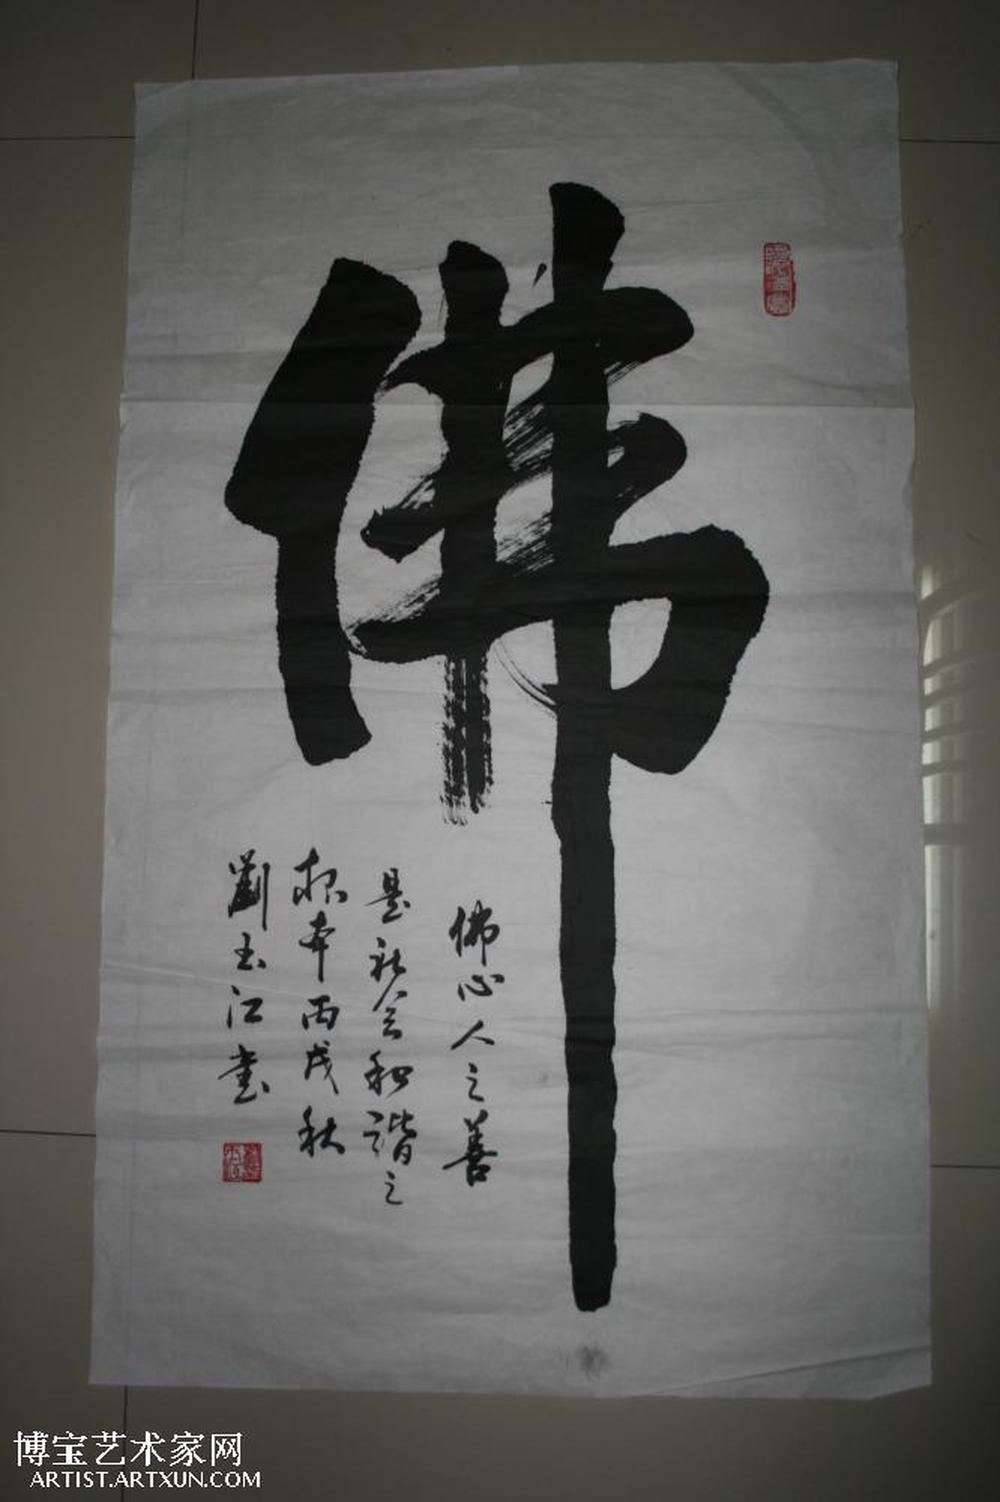 佛
佛心人之善
是社会和谐之
根本丙戌秋
劉玉江書
博宝艺术家网
ARTIST.ARTXUN.COM